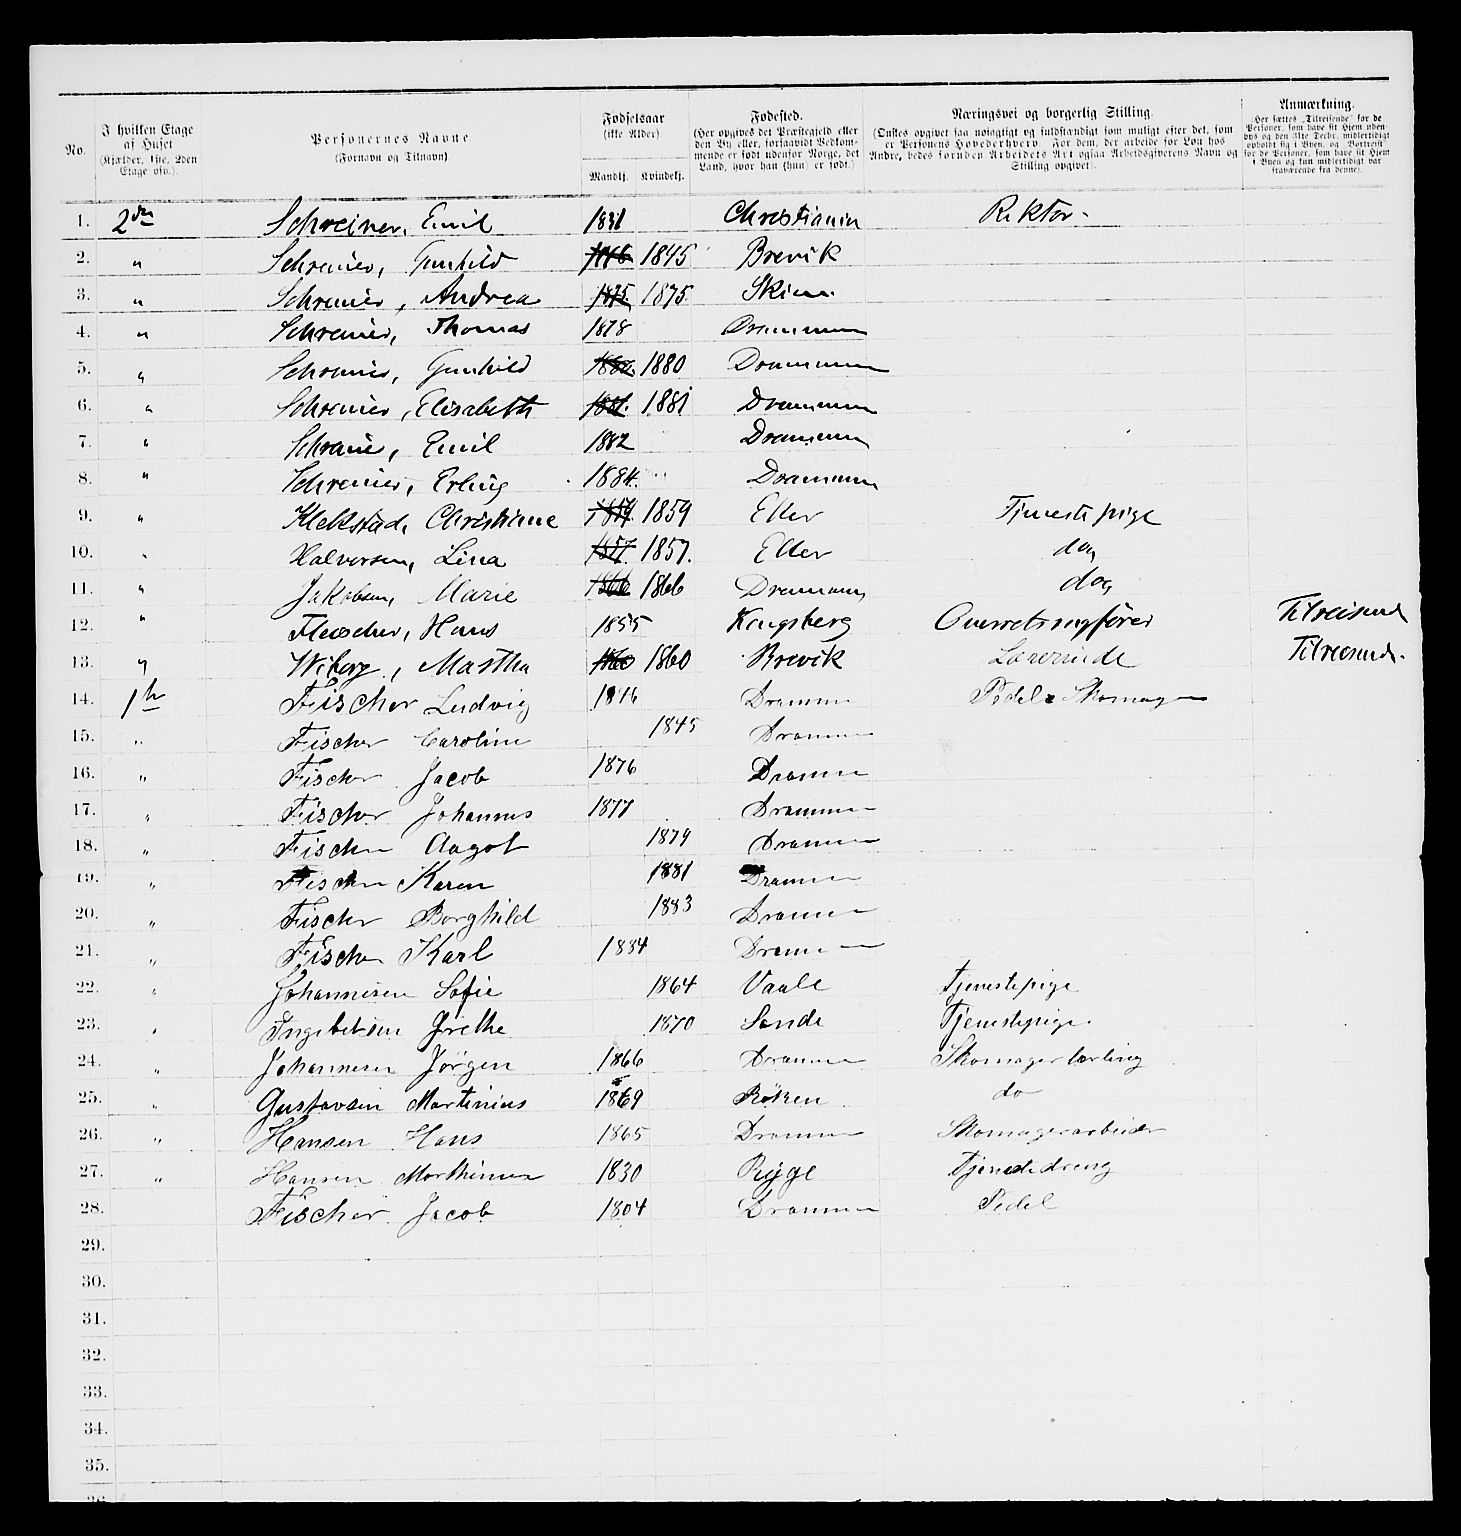 No. | I hvilken Etage af Huset (Kjælder, 1ste, 2den Etage osv.). | Personernes Navne (Fornavn og Tilnavn) | Fødselsaar (ikke Alder) Mandkj. | Kvindekj. | Fødested. (Her opgives det Præstegjeld eller den By eller, forsaavidt Vedkommende er født udenfor Norge, det Land, hvor han (hun) er født.) | Næringsvei og borgerlig Stilling. (Ønskes opgivet saa nøiagtigt og fuldstændigt som muligt efter det, som er Personens Hovederhverv. For dem, der arbeide for Løn hos Andre, bedes foruden Arbeidets Art ogsaa Arbeidsgiverens Navn og Stilling opgivet). | Anmærkning. (Her sættes „Tilreisende" for de Personer, som have sit Hjem udenbys og den 31te Decbr. midlertidigt opholdt sig i Byen, og „Bortreist" for de Personer, som have sit Hjem i Byen og kun midlertidigt var fraværende fra denne).
1. 2den Schreiner, Emil 1831 Christiania Rektor.
2. " Schreiner, Gunhild 1845 Brevik
3. " Schreiner, Andrea 1875 1875. Skien.
4. " Schreiner, Thomas 1878 Drammen
5. " Schreiner, Gunhild 1880 Drammen
6. " Schreiner, Elisabeth 1881. 1881 Drammen
7. " Schreiner, Emil 1882 Drammen
8. " Schreiner, Erling 1884. Drammen
9. " Klekstad, Christiane 1859 1859 Eker Tjenestepige
10. " Halvorsen, Lina 1857. 1857. Eker do,
11. " Jakobsen, Marie 1866 1866 Drammen do,
12. " Fleischer, Hans 1855 Kongsberg Overretssagfører Tilreisend
13. " Wiborg, Martha 1860 1860 Brevik Lærerinde Tilreisend.
14. 1ste Fischer Ludvig 1846 Drammen Pedel & Skomager
15. " Fischer Caroline 1845 Drammen
16. " Fischer Jacob 1876 Drammen
17. " Fischer Johannes 1877 Drammen
18. " Fischer Aagot 1879 Drammen
19. " Fischer Karen 1881 Drammen
20. " Fischer Borghild 1883 Drammen
21. " Fischer Karl 1884 Drammen
22. " Johannesen Sofie 1864 Vaale Tjenestepige
23. " Ingebretsen Grethe 1870 Sande Tjenestepige.
24. " Johannesen Jørgen 1866 Drammen Skomagerlærling
25. " Gustavsen Martinius 1869 Røken do
26. " Hansen Hans 1865 Drammen Skomagerarbeider
27. " Hansen Marthinus 1830 Rygge Tjenestedreng
28. Fischer Jacob 1804 Drammen Pedel
29.
30.
31.
32.
33.
34.
35.
36.